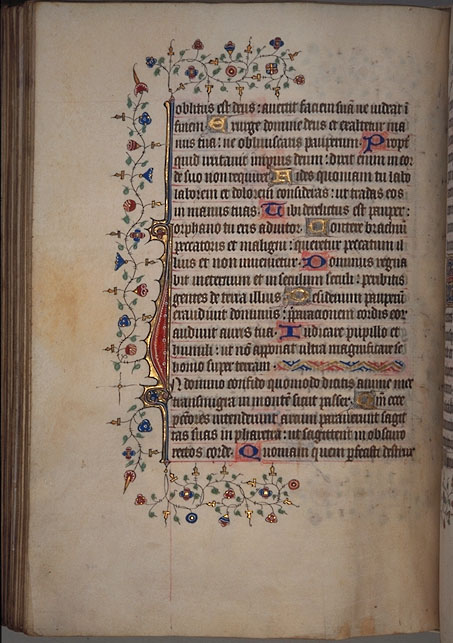 oblitus est deus : auertit faciem suã ne uideat ĩ
finem Exurge domine deus et exaltetur ma
nus tua : ne obliuiscaris pauperum. Propt'
quid irritauit impius deum : dixit enim in cor
de suo non requiret. Uides quoniam tu labo
laborem et dolorem consideras : ut tradas eos
in manus tuas. Tibi derelictus est pauper :
orphano tu eris adiutor. Contere brachium
peccatoris et maligni : queretur peccatum il
lius et non inuenietur. Dominus regna
bit in eternum et in seculum seculi : peribitis
gentes de terra illius. Desiderium pauperũ
exaudiuit dominus : preparationem cordis eor
audiuit auris tua. Iudicare pupillo et
humili : ut nõ apponat ultra magnificare se
homo super terram.
In domino confido quomodo dicitis anime mee
transmigra in montẽ sicut passer. Qm̃ ecce
pctores intenderunt arcum parauerunt sagit
tas suas in pharetra : ut sagittent in obscuro
rectos corde. Quoniam que pfecisti destrux